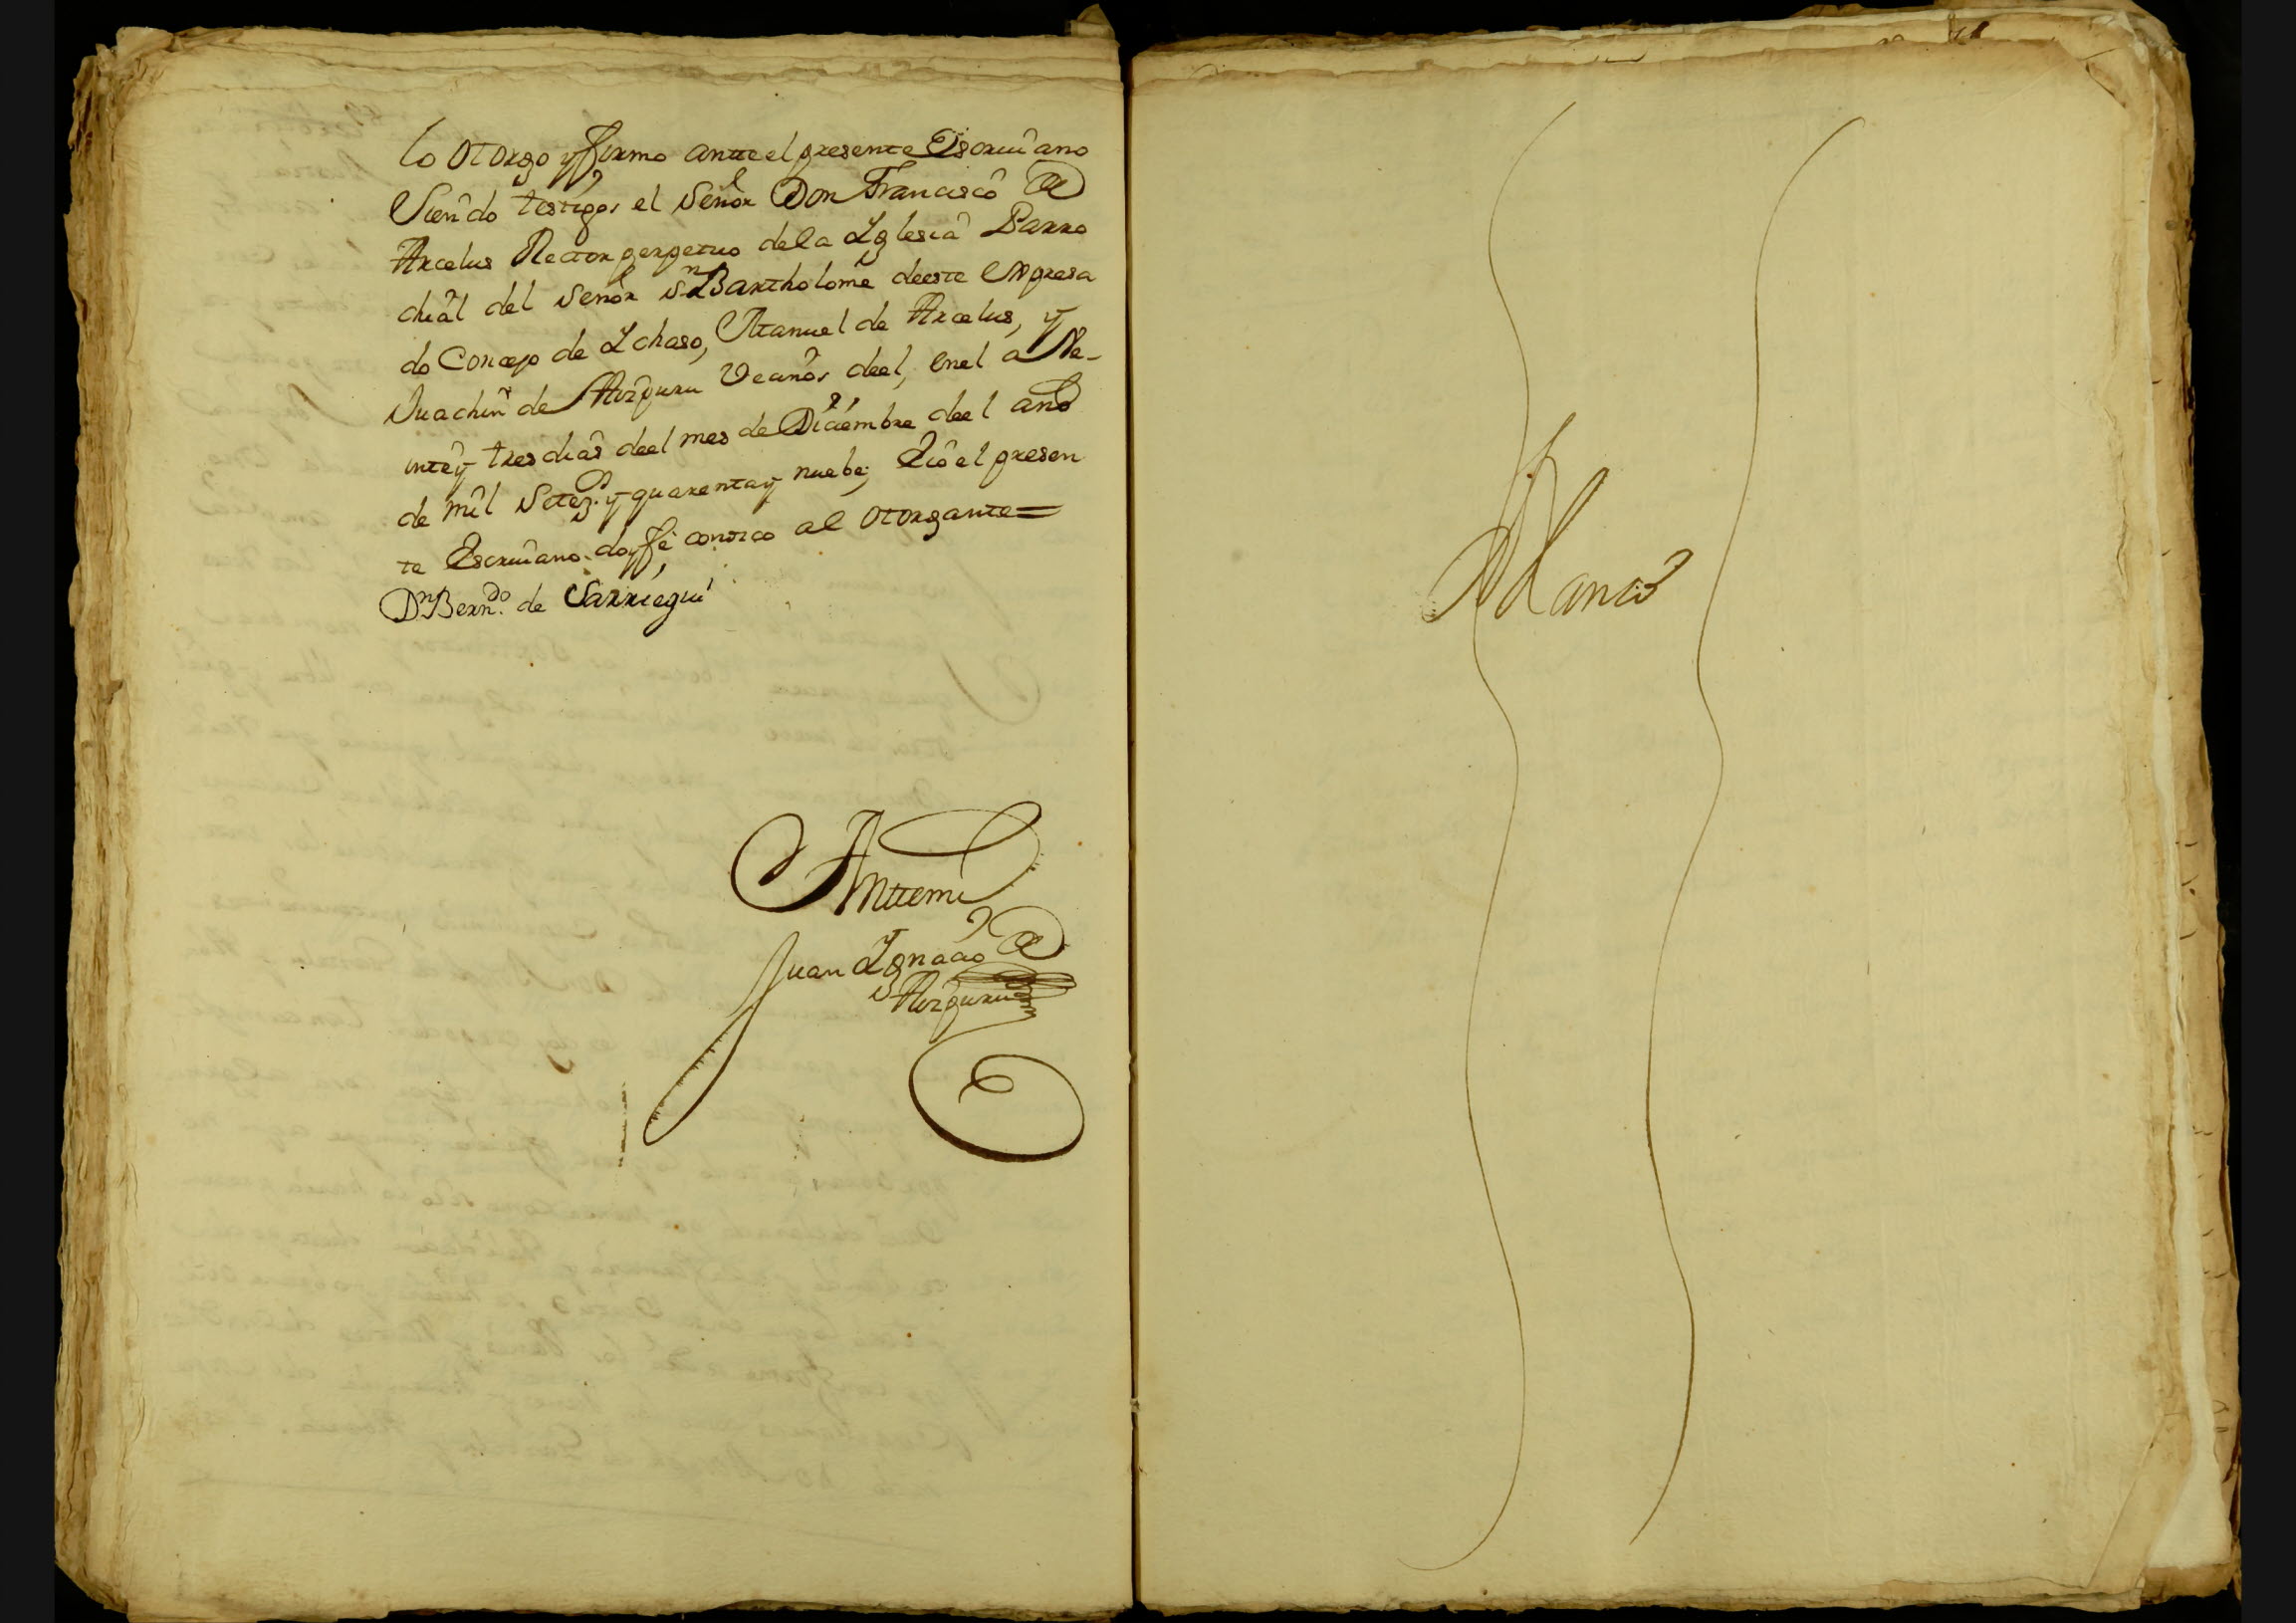 lo otorgo y firmo antte el presente Escriuano
Siendo testigos el Señor Don Francisco de
Arcelus Rector perpetuo de la Yglesia Parro
chial del Señor Sn Bartholome de este expresa
do Concejo de Ychaso, Manuel de Arcelus, y
Juachin de Aizpuru Vecinos de el, en el a Ve-
inte y tres dias de el mes de Diciembre de el año
de mil Setezs. y quarenta y nuebe; E io el presen
te Escriuano doy fe conozco al otorgante=
Dn Berndo. de Sarriegui
Antte mi
Juan Ygnacio de
Aizpuru
Blanco